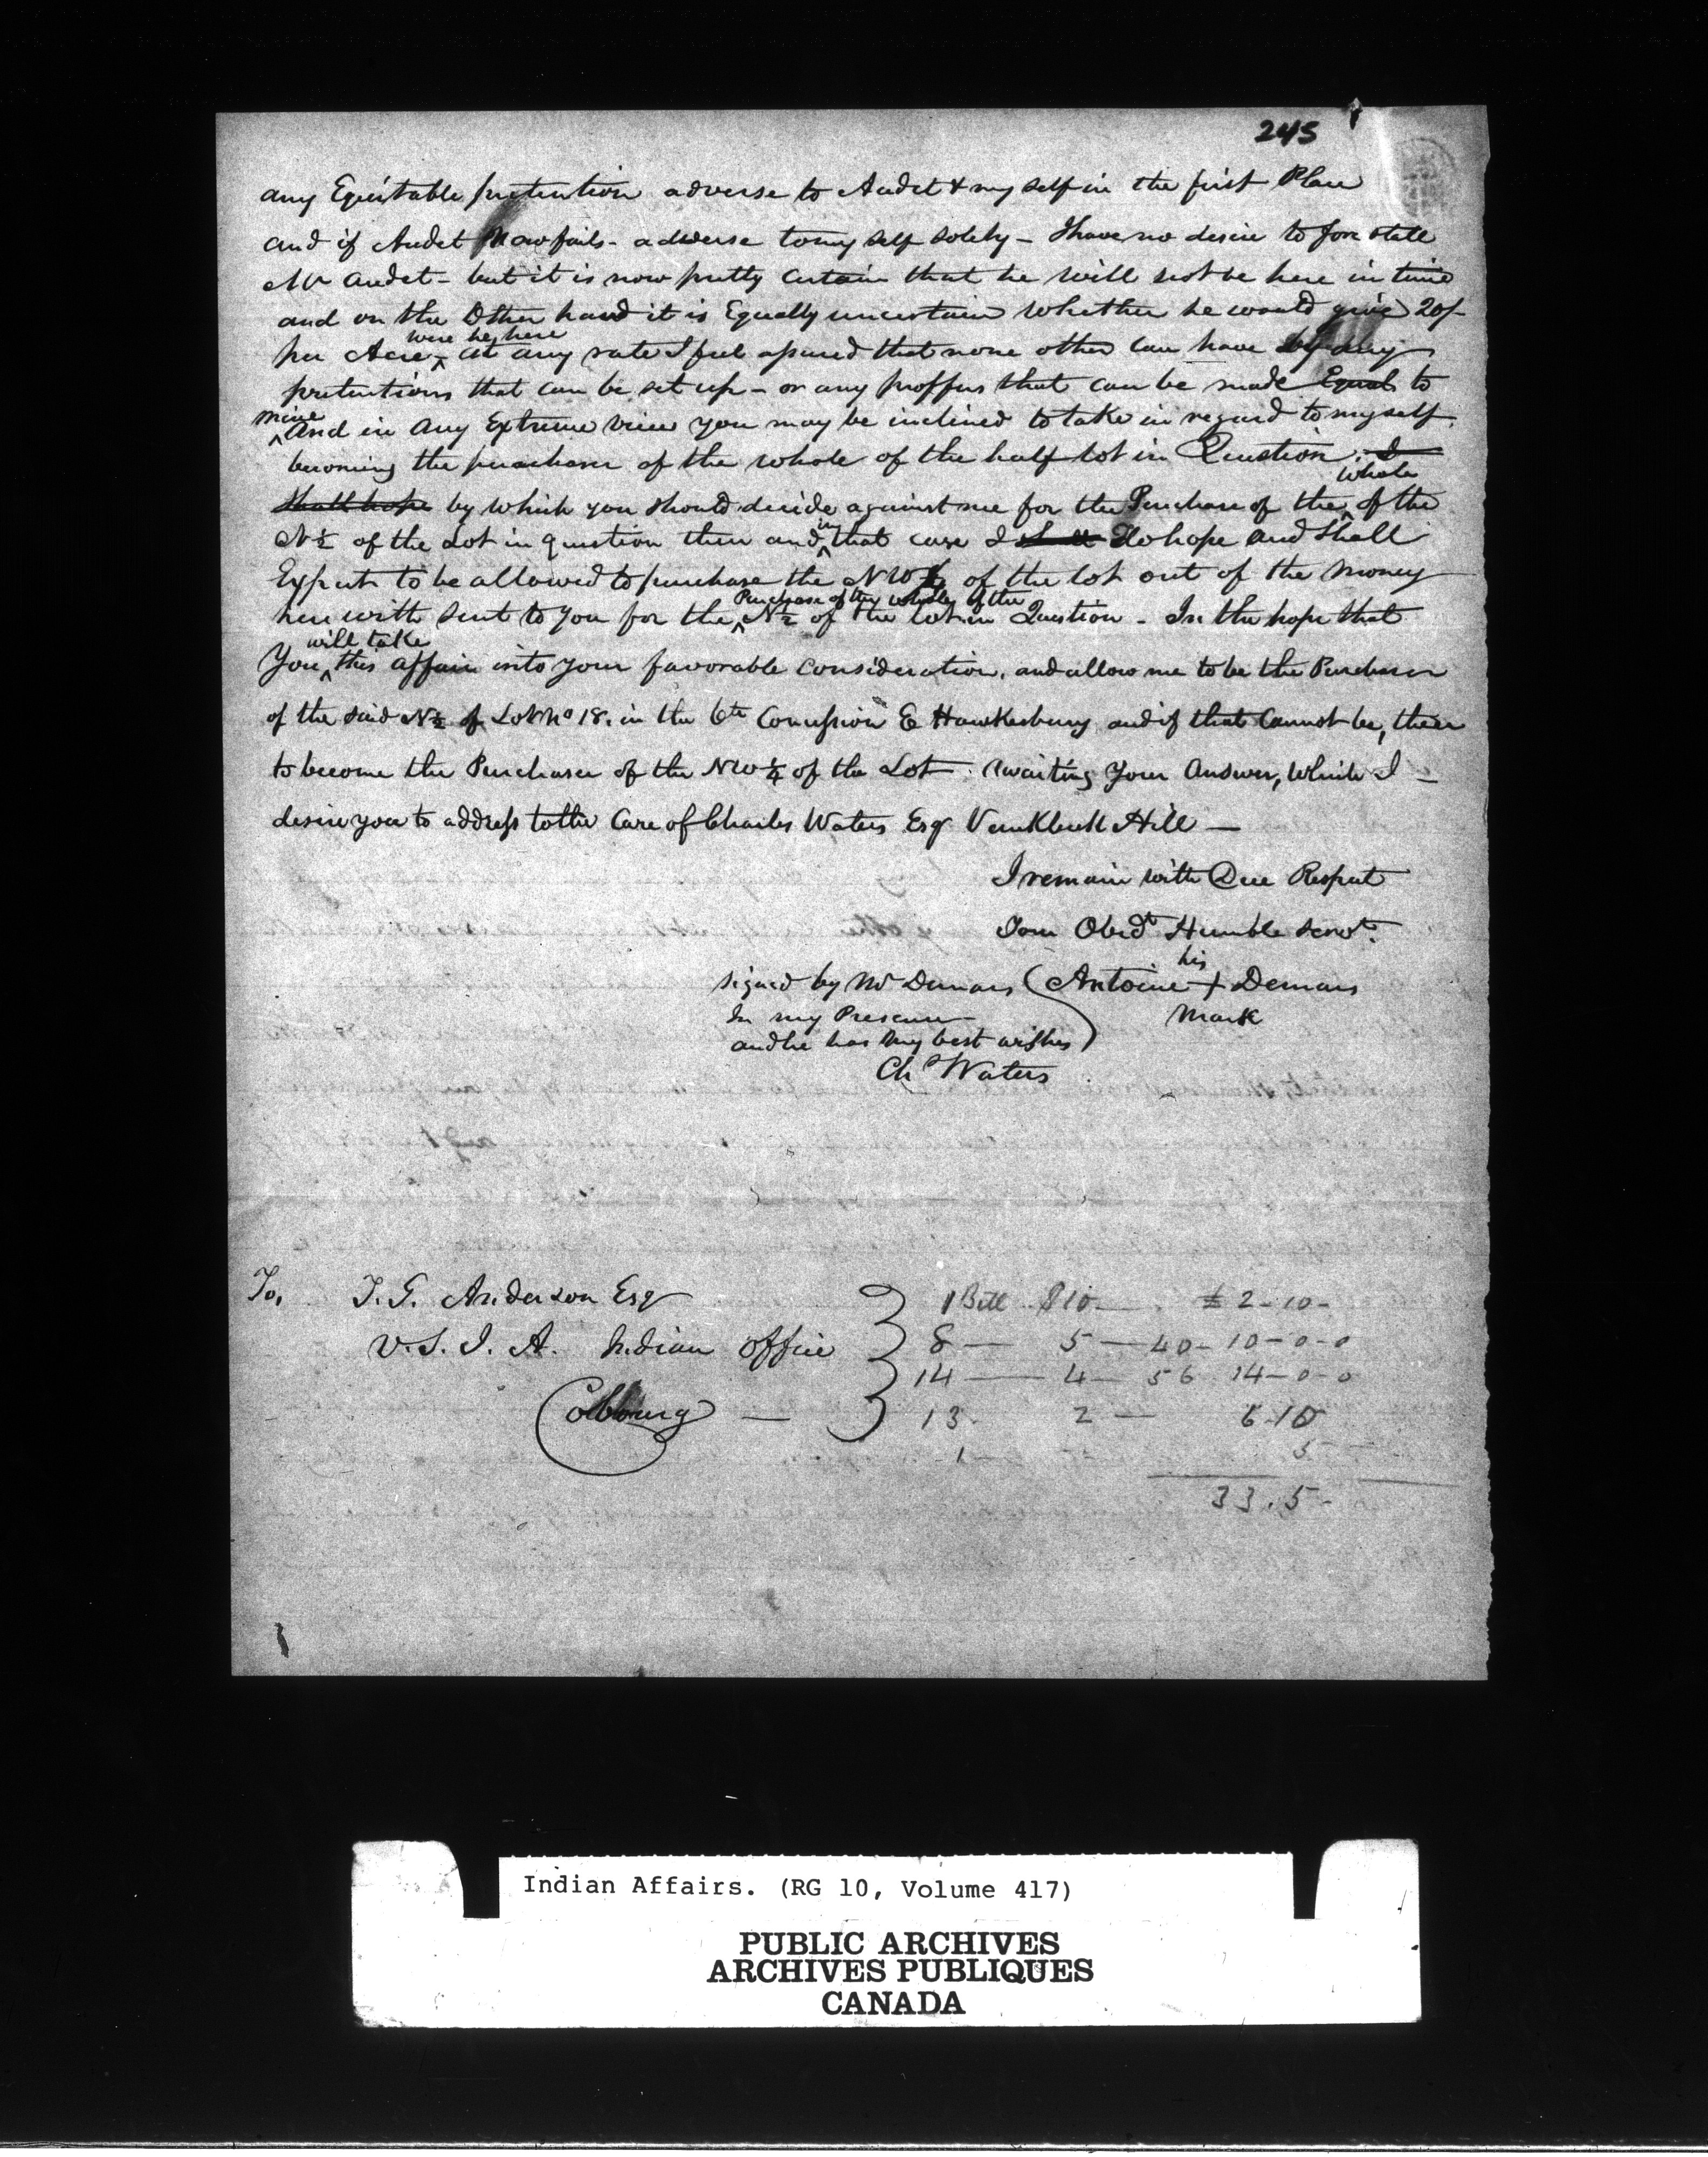 245
any Equitable pretention adverse to Audet & my self in the first Place
and if Audet Now fails - adverse to my self solely - I have no desire to fore stall
Mr Audet - but it is now pretty certain that he will not be here in time
and on the Other hand it is Equally uncertain whether he would give 20/-
were he here
per Acre ^ at any rate I feel assured that none other can have any
pretentions that can be set up - or any proffers that can be made Equal to
mine
^ And in any Extreme view you may be inclined to take in regard to myself
becoming the purchaser of the whole of the half lot in Question. I
whole
shall hope by which you should decide against me for the Purchase of the ^ of the
in
N½ of the Lot in question then and ^ that case I shall Do hope and shall
Expect to be allowed to purchase the NW¼ of the lot out of the money
Purchase of the whole of the
here with sent to you for the ^ N½ of the lot in Question - In the hope that
will take
You ^ this affair into your favorable consideration, and allow me to be the Purchaser
of the said N½ of Lot No 18. in the 6th Concession E Hawkesbury and if that cannot be, then
to become the Purchaser of the NW¼ of the Lot. Awaiting Your Answer, which I -
desire you to address to the Care of Charles Waters Esqr Vankleek Hill -
I remain with Due Respect
Your Obedt Humble servt.
his
signed by Mr Demars ( Antoine + Demars
In my Presence mark
and he has my best wishes )
Chs Waters
To, T. G. Anderson Esqr 1 Bill $10 - £ 2-10-
V. S. I. A. Indian Office 8 - 5 - 40 - 10-0-0
14 - 4 - 56 14-0-0
Cobourg - 13 - 2 - 6-10
1 - 5
33.5-
Indian Affairs. (RG 10, Volume 417)
PUBLIC ARCHIVES
ARCHIVES PUBLIQUES
CANADA